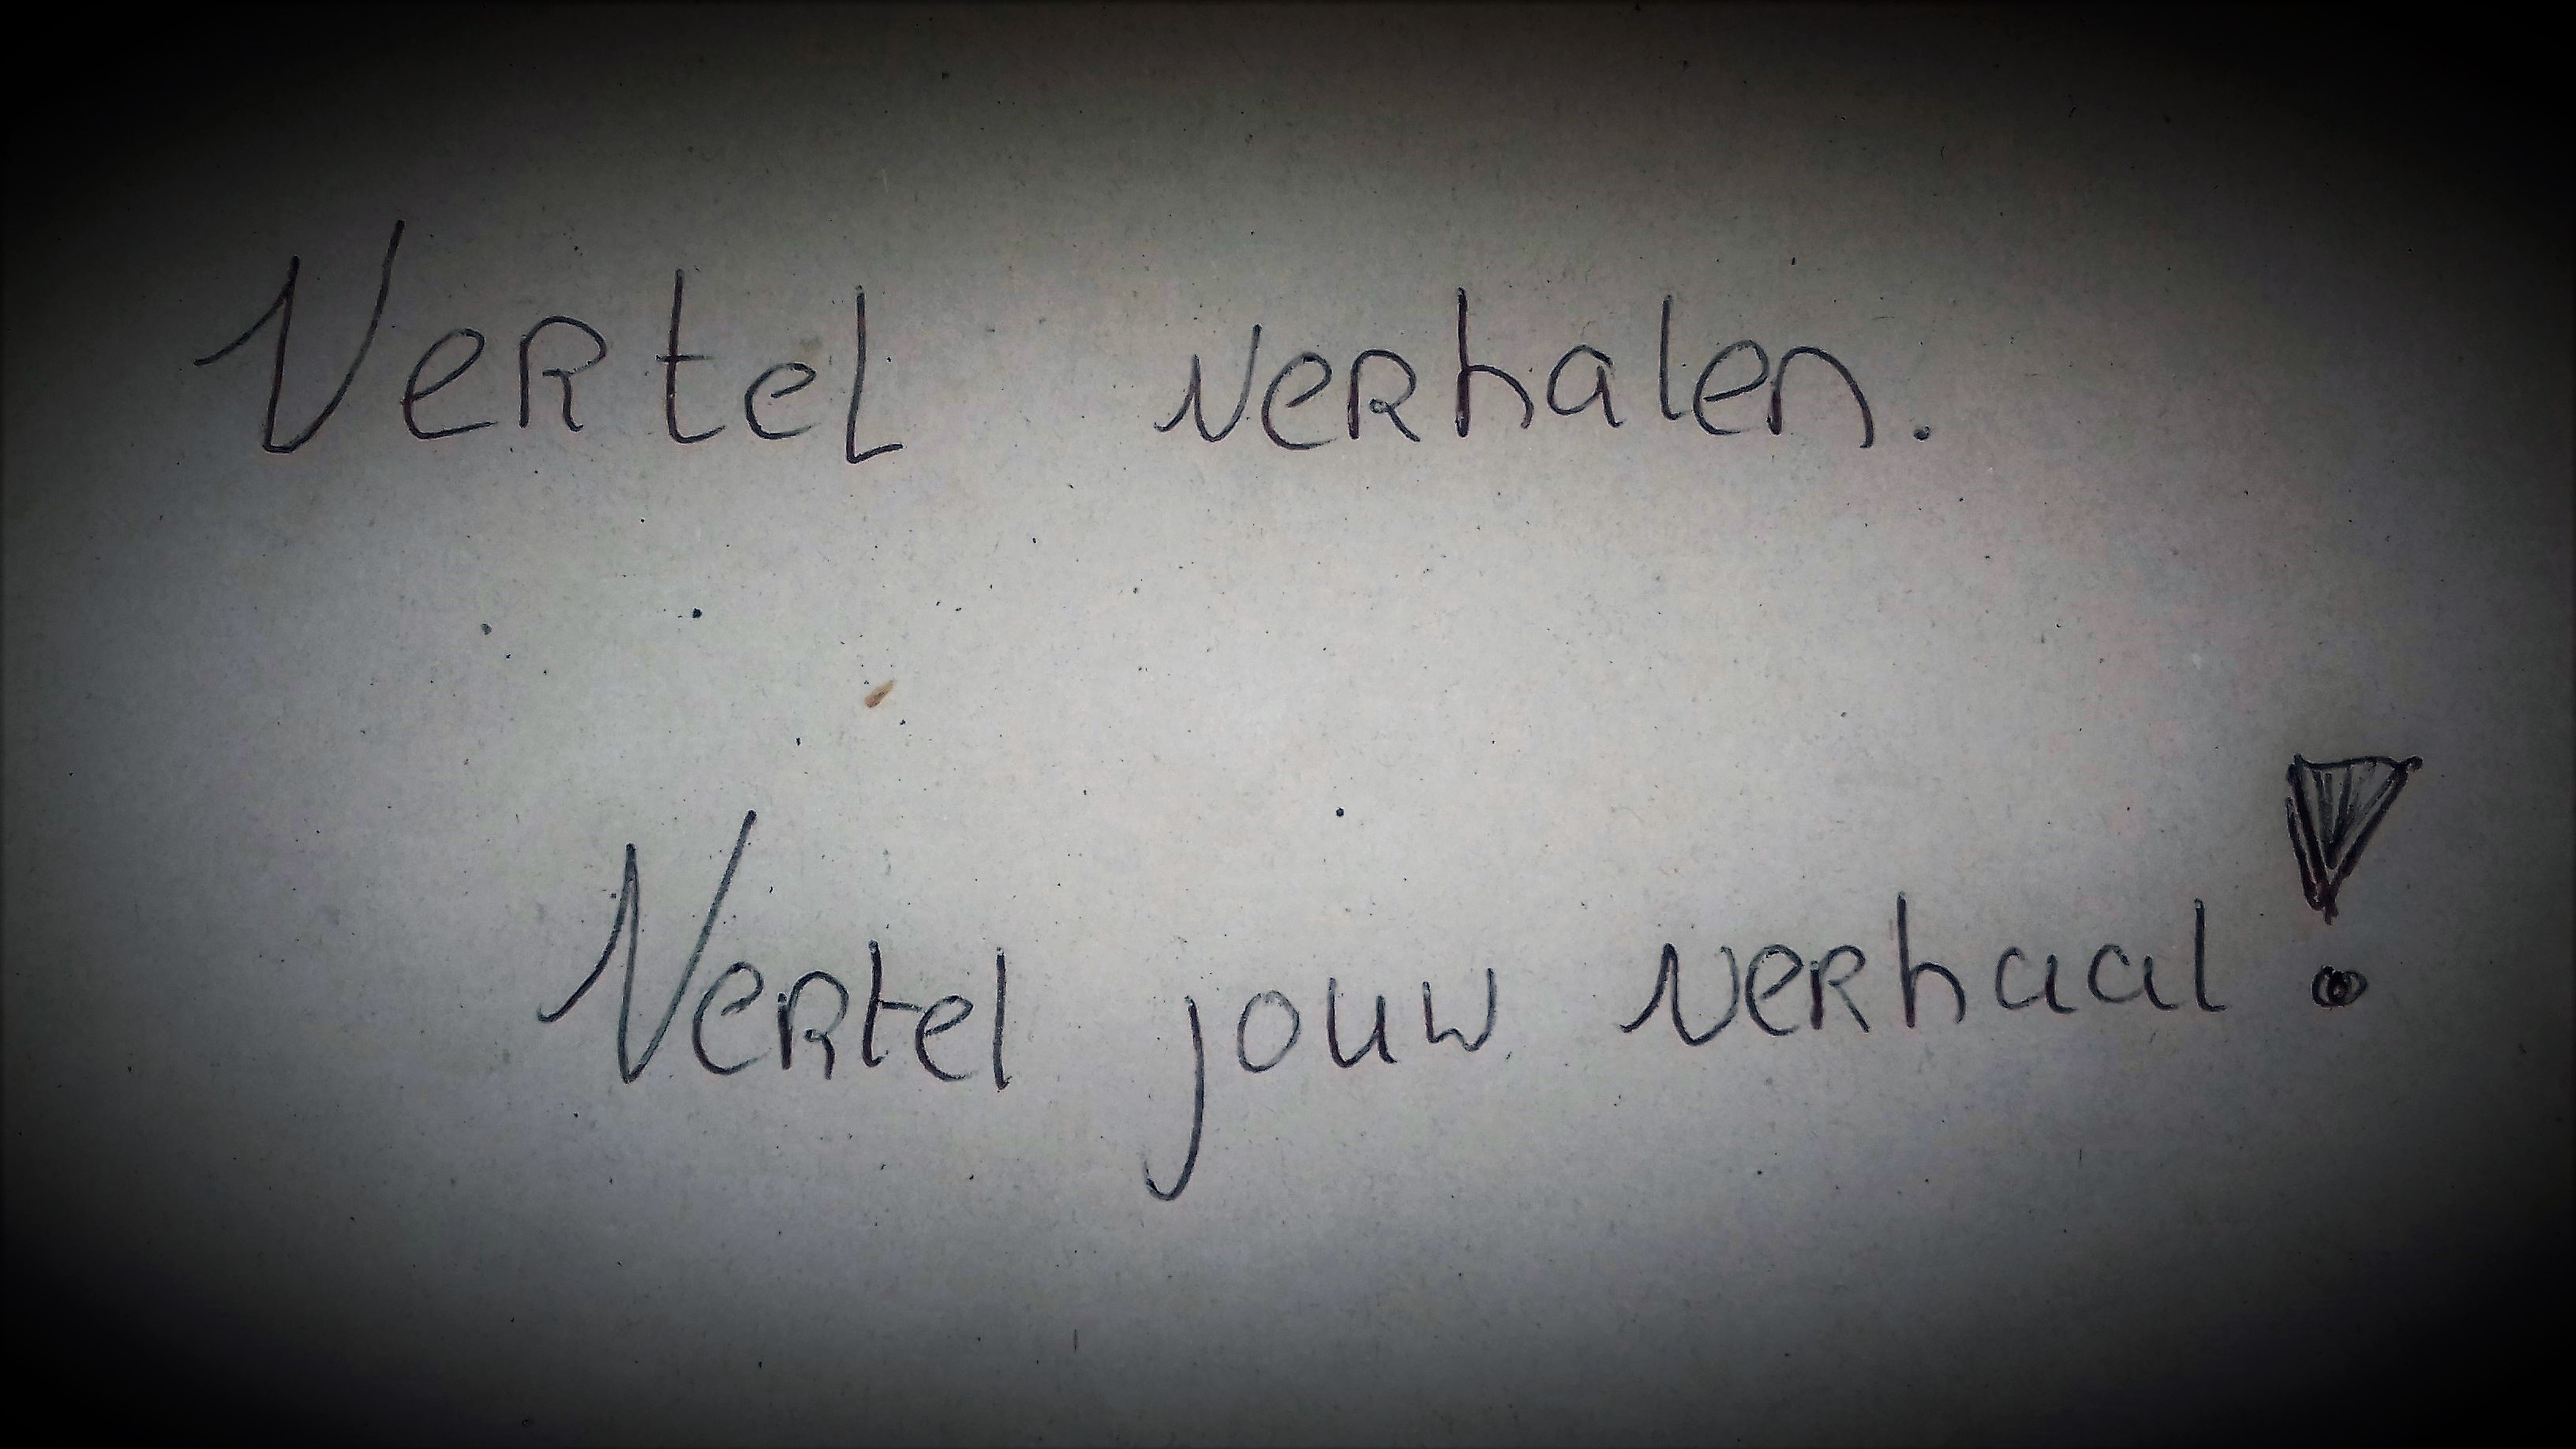 Vertel verhalen.
Vertel jouw verhaal!